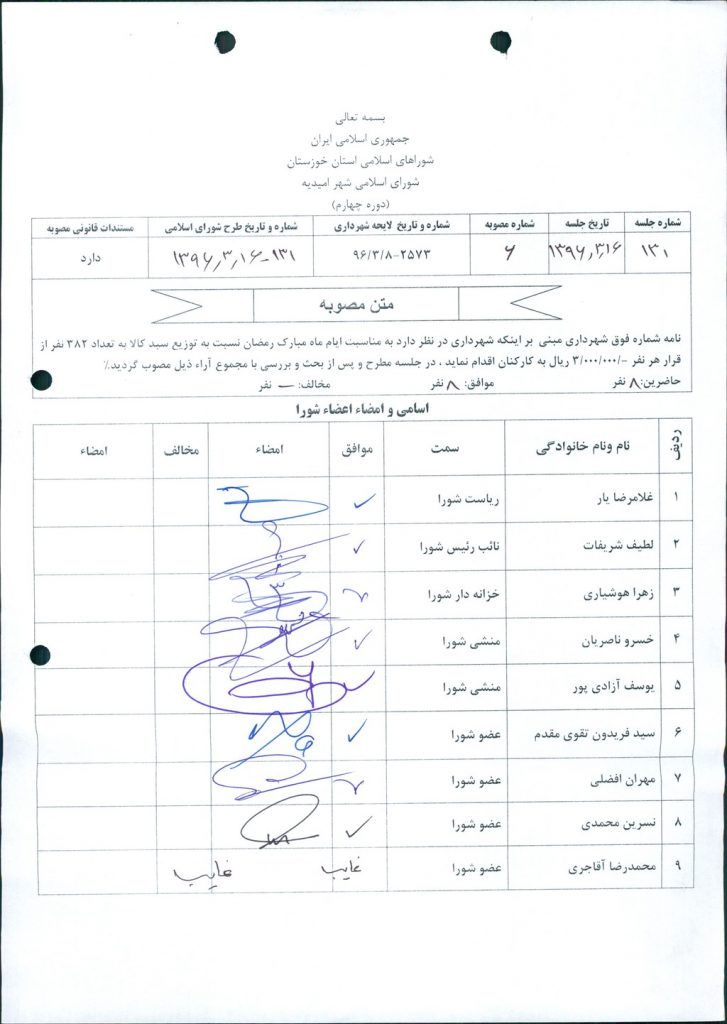 بسمه تعالی
جمهوری اسلامی ایران
شوراهای اسلامی استان خوزستان
شورای اسلامی شهر امیدیه
(دوره چهارم)
شماره جلسه تاریخ جلسه شماره مصوبه شماره و تاریخ لایحه شهرداری شماره و تاریخ طرح شورای اسلامی مستندات قانونی مصوبه
۱۳۱ ۱۳۹۶٫۳٫۱۶ ۶ ۹۶/۳/۸-۲۵۷۳ ۱۳۱-۱۳۹۶٫۳٫۱۶ دارد
متن مصوبه
نامه شماره فوق شهرداری مبنی بر اینکه شهرداری در نظر دارد به مناسبت ایام ماه مبارک رمضان نسبت به توزیع سبد کالا به تعداد ۳۸۲ نفر از
قرار هر نفر -/۳/۰۰۰/۰۰۰ ریال به کارکنان اقدام نماید ، در جلسه مطرح و پس از بحث و بررسی با مجموع آراء ذیل مصوب گردید.٪
حاضرین: ۸ نفر موافق: ۸ نفر مخالف: — نفر
اسامی و امضاء اعضاء شورا
ردیف نام ونام خانوادگی سمت موافق امضاء مخالف امضاء
۱ غلامرضا یار ریاست شورا ✓
۲ لطیف شریفات نائب رئیس شورا ✓
۳ زهرا هوشیاری خزانه دار شورا ✓
۴ خسرو ناصریان منشی شورا ✓
۵ یوسف آزادی پور منشی شورا ✓
۶ سید فریدون تقوی مقدم عضو شورا ✓
۷ مهران افضلی عضو شورا ✓
۸ نسرین محمدی عضو شورا ✓
۹ محمدرضا آقاجری عضو شورا غایب غایب